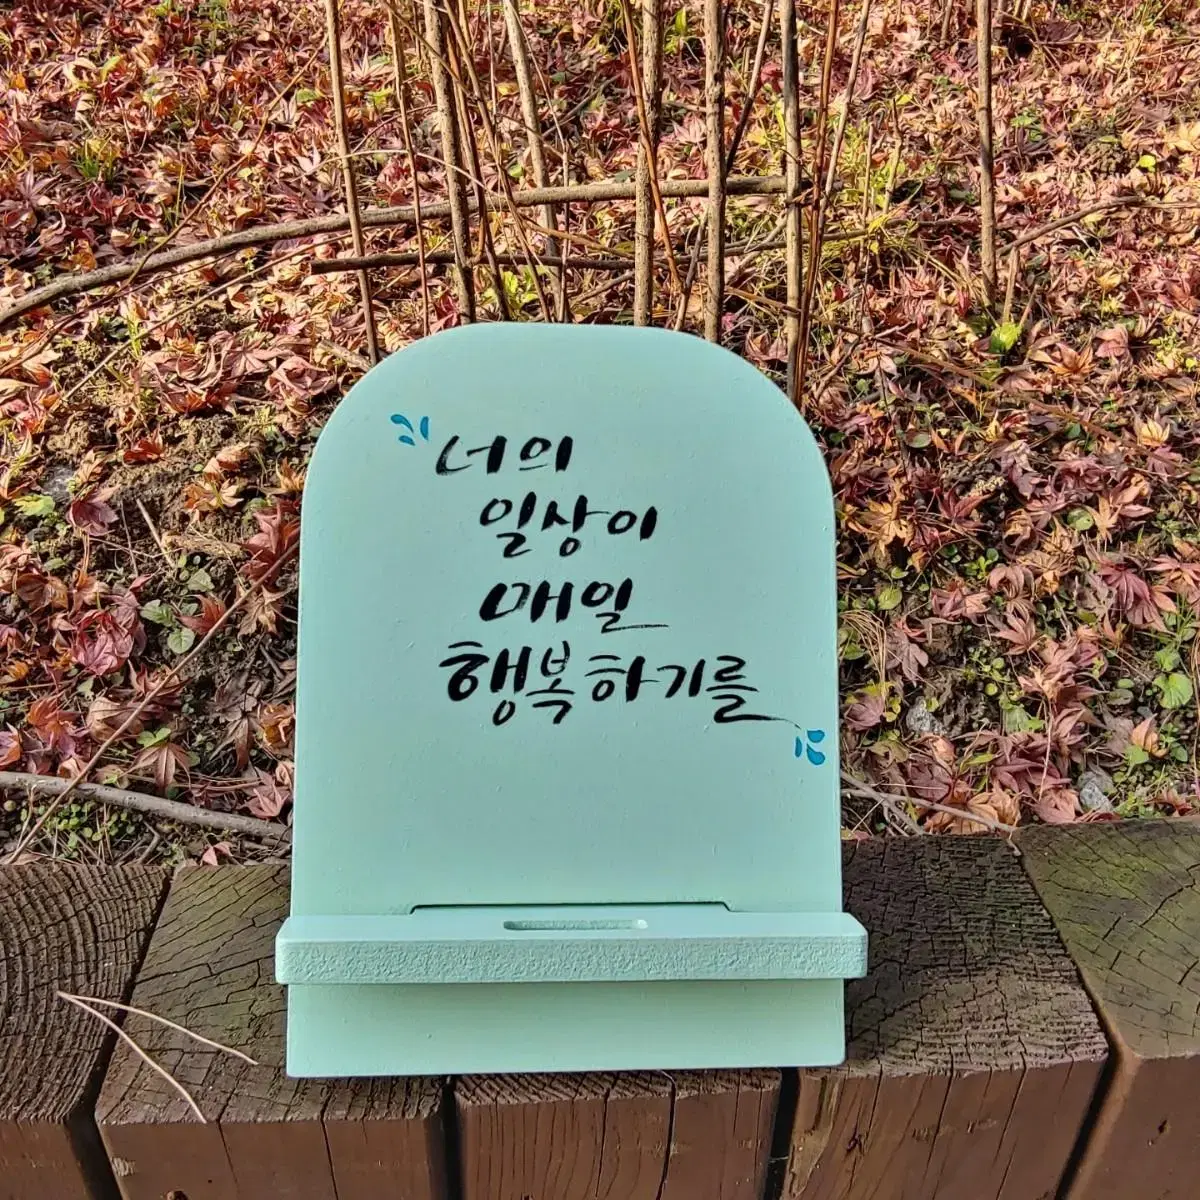 너의
일상이
매일
행복하기를